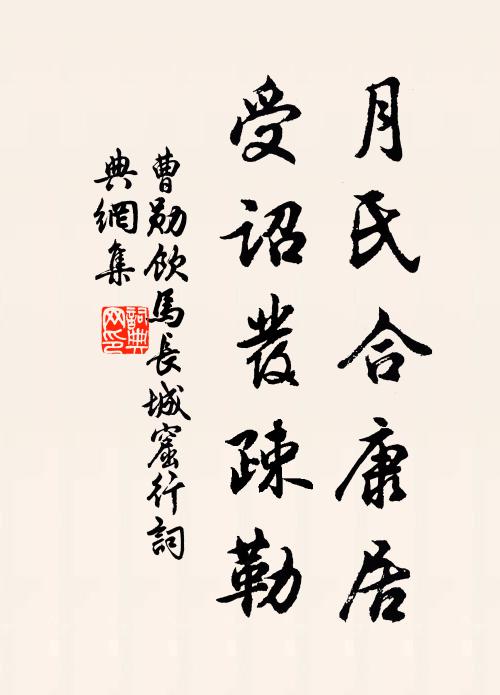 月氏合康居
受詔發疎勒
曹勛飲馬長城窟行詞
典網集
詞典网印